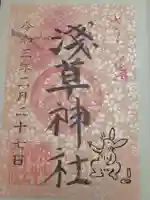 淺草神社
令和三年二月二十七日